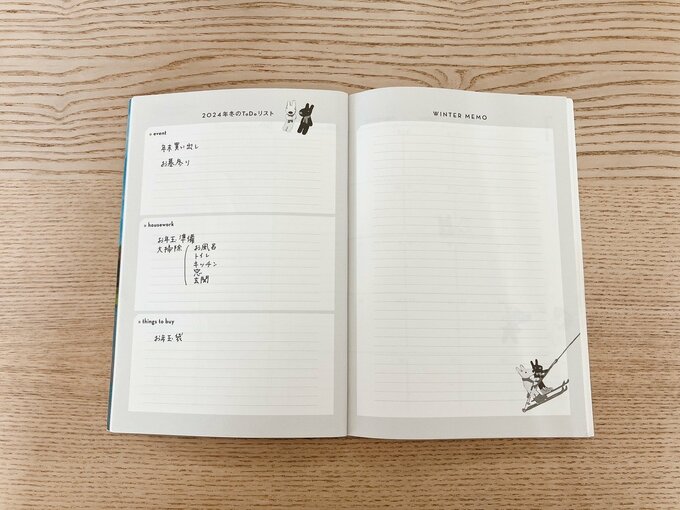 2024年冬のToDoリスト
event
年末買い出し
お墓参り
housework
お年玉準備
大掃除 お風呂
トイレ
キッチン
窓
玄関
things to buy
お年玉袋
WINTER MEMO